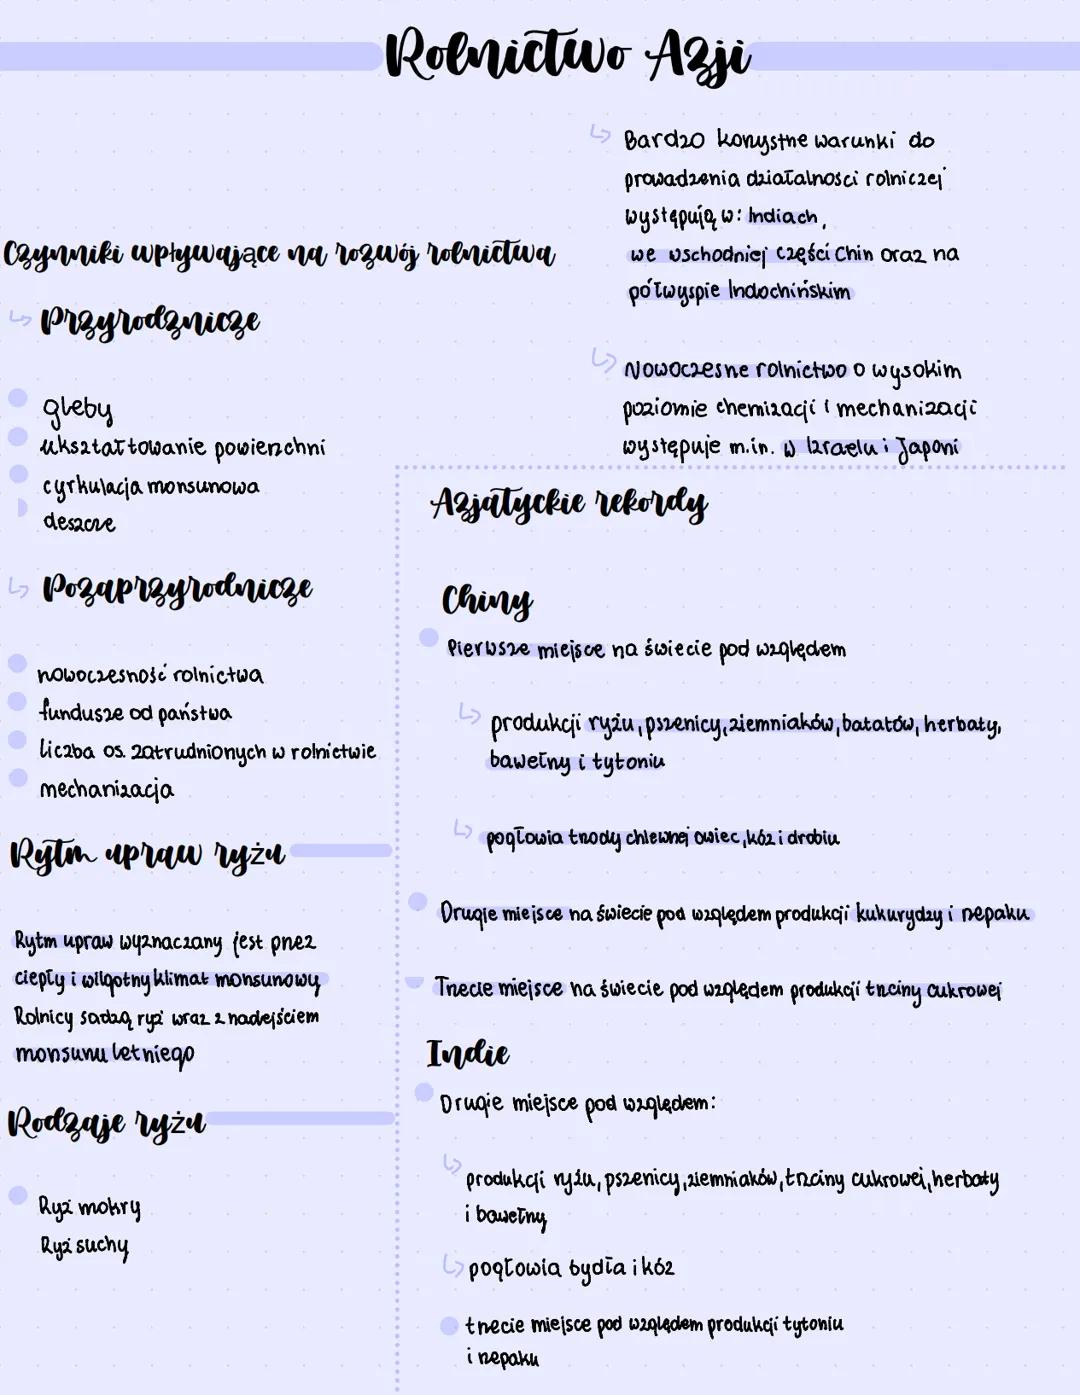 Rolnictwo Azji
Czynniki wpływające na rozwój rolnictwa
Przyrodznicze
gleby
ukształtowanie powierzchni
cyrkulacja monsunowa
deszcze
Pozaprzyrodnicze
nowoczesność rolnictwa
fundusze od państwa
liczba os. zatrudnionych w rolnictwie
mechanizacja
Rytm upraw ryżu
Rytm upraw wyznaczany jest przez
ciepły i wilgotny klimat monsunowy
Rolnicy sadzą ryż wraz z nadejściem
monsunu letniego
Rodzaje ryżu
Ryż mokry
Ryż suchy
Bardzo korzystne warunki do
prowadzenia działalności rolniczej
występują w: Indiach,
we wschodniej części Chin oraz na
półwyspie Indochińskim
Nowoczesne rolnictwo o wysokim
poziomie chemizacji i mechanizacji
występuje m.in. w Izraelu i Japoni
Azjatyckie rekordy
Chiny
Pierwsze miejsce na świecie pod względem
produkcji ryżu, pszenicy, ziemniaków, batatów, herbaty,
bawełny i tytoniu
pogłowia trzody chlewnej owiec, kóz i drobiu
Drugie miejsce na świecie pod względem produkcji kukurydzy i rzepaku
Trzecie miejsce na świecie pod względem produkcji trzciny cukrowej
Indie
Drugie miejsce pod względem:
produkcji ryżu, pszenicy, ziemniaków, trzciny cukrowej, herbaty
i bawełny
pogłowia bydła i kóz
trzecie miejsce pod względem produkcji tytoniu
i rzepaku